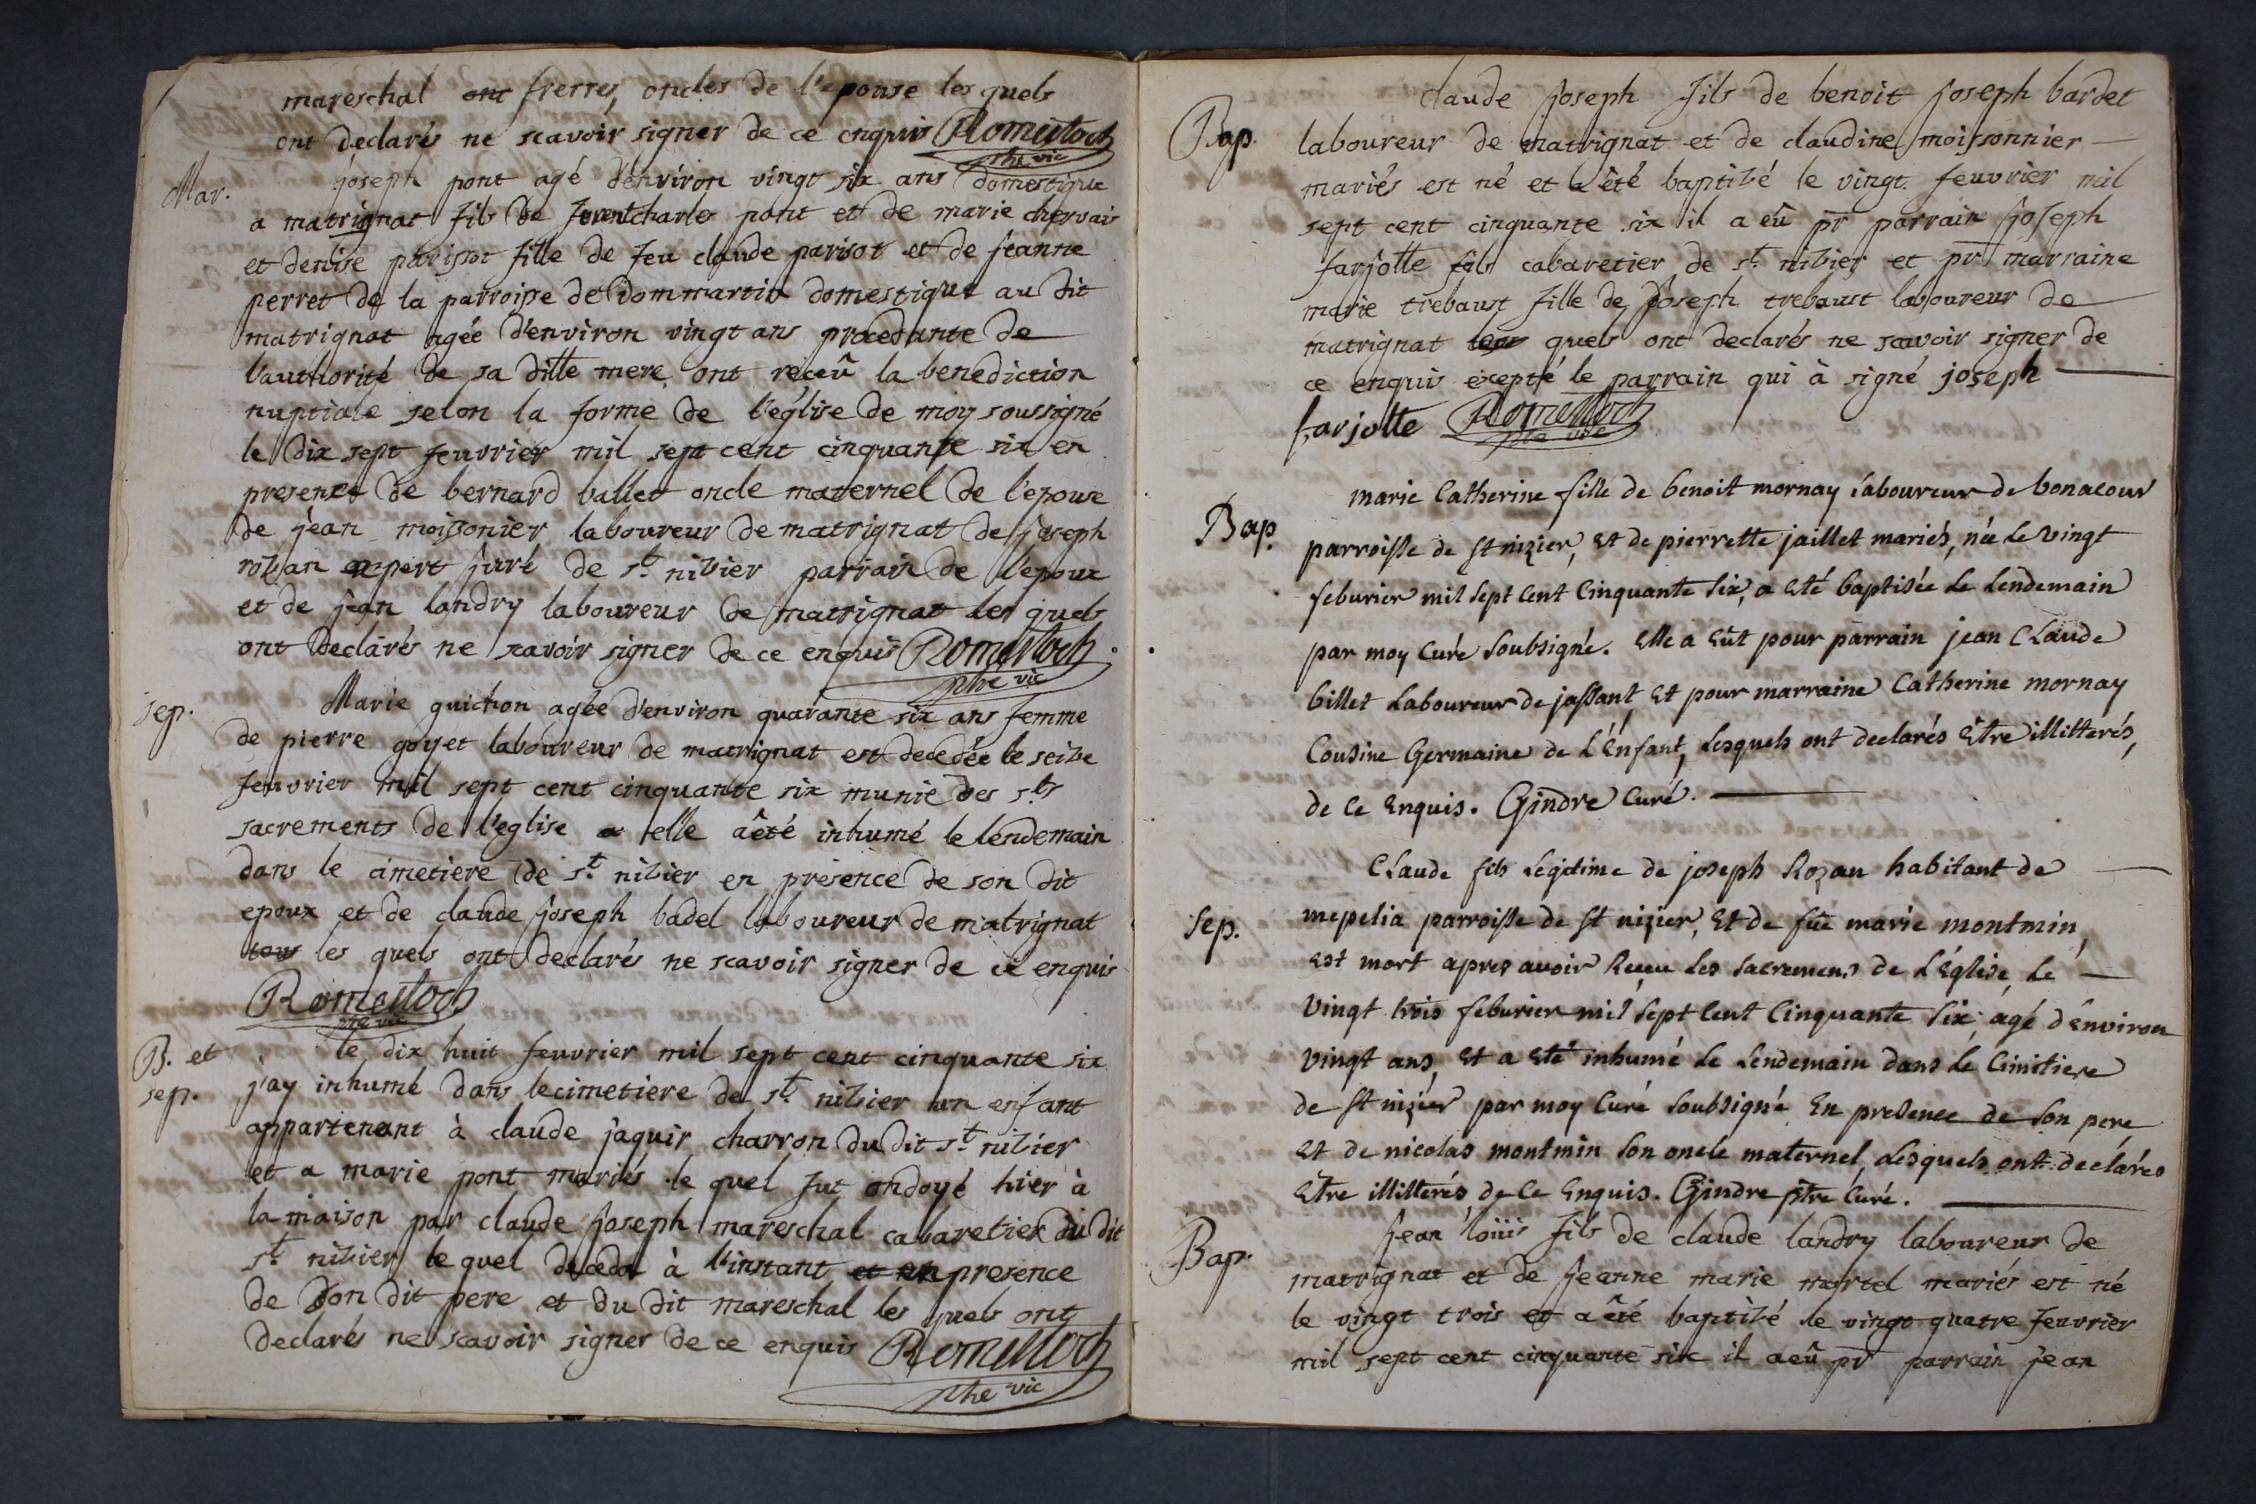 mareschal ont frerres oncles de l'epouse les quels
ont declarés ne scavoir signer de ce enquis Romeulloch
phe vic
Mar.
joseph pont agé d'environ vingt six ans domestique
a matrignat fils de charles pont et de marie chervais
et denise parisot fille de feu claude parisot et de jeanne
perret de la parroisse de dommartin domestique au dit
matrignat agée d'environ vingt ans procedante de
l'authorité de sa ditte mere ont reçeû la benediction
nuptiale selon la forme de l'église de moy soussigné
le dix sept feuvrier mil sept cent cinquante six en
presence de bernard ballet oncle maternel de l'epouse
de jean moissonier laboureur de matrignat de joseph
rozan expert juré de st. nizier parrain de l'epoux
et de jean landry laboureur de matrignat les quels
ont declarés ne scavoir signer de ce enquis Romeulloch
phe vic
sep.
Marie guichon agée d'environ quarante six ans femme
de pierre goyet laboureur de matrignat est decedée le seize
feuvrier mil sept cent cinquante six munie des sts
sacrements de l'eglise elle a êté inhumé le lendemain
dans le cimetiere de st. nizier en presence de son dit
epoux et de claude joseph badel laboureur de matrignat
tous les quels ont declarés ne scavoir signer de ce enquis
Romeulloch
phe vic
B. et
sep.
le dix huit feuvrier mil sept cent cinquante six
j'ay inhumé dans le cimetiere de st. nizier un enfant
appartenant à claude jaquir charron du dit st. nizier
et a marie pont mariés le quel fut ondoyé hier à
la maison par claude joseph mareschal cabaretier du dit
st. nizier le quel deceda à l'instant et en presence
de son dit pere et du dit mareschal les quels ont
declarés ne scavoir signer de ce enquis Romeulloch
phe vic
Bap.
claude joseph fils de benoit joseph bardet
laboureur de matrignat et de claudine moissonnier
mariés est né et a êté baptizé le vingt feuvrier mil
sept cent cinquante six il a eû pr parrain joseph
farjotte fils cabaretier de st. nizier et pr marraine
marie trebaust fille de joseph trebaust laboureur de
matrignat les quels ont declarés ne scavoir signer de
ce enquis excepté le parrain qui à signé joseph
farjotte Romeulloch
phe vic
Bap.
marie Catherine fille de benoit mornay laboureur de bonacour
parroisse de st nizier, et de pierrette jaillet mariés, née le vingt
feburier mil sept cent cinquante six, a eté baptisée le lendemain
par moy curé soubsigné. elle a eût pour parrain jean claude
billet laboureur de jassant, et pour marraine Catherine mornay
cousine germaine de l'enfant, lesquels ont declarés être illitterés,
de ce enquis. Gindre curé.
Sep.
Claude fils legitime de joseph Rozan habitant de
mepelia parroisse de st nizier, et de fûe marie montmin,
est mort apres avoir reçeu les sacremens de l'église, le
vingt trois feburier mil sept cent cinquante six, agé d'environ
vingt ans, et a eté inhumé le lendemain dans le cimitiere
de st nizier par moy curé soubsigné en presence de son pere
et de nicolas montmin son oncle maternel, lesquels ont declarés
être illitterés, de ce enquis. Gindre ptre curé.
Bap.
jean loüis fils de claude landry laboureur de
matrignat et de jeanne marie martel mariés est né
le vingt trois et a êté baptizé le vingt quatre feuvrier
mil sept cent cinquante six il a eû pr parrain jean